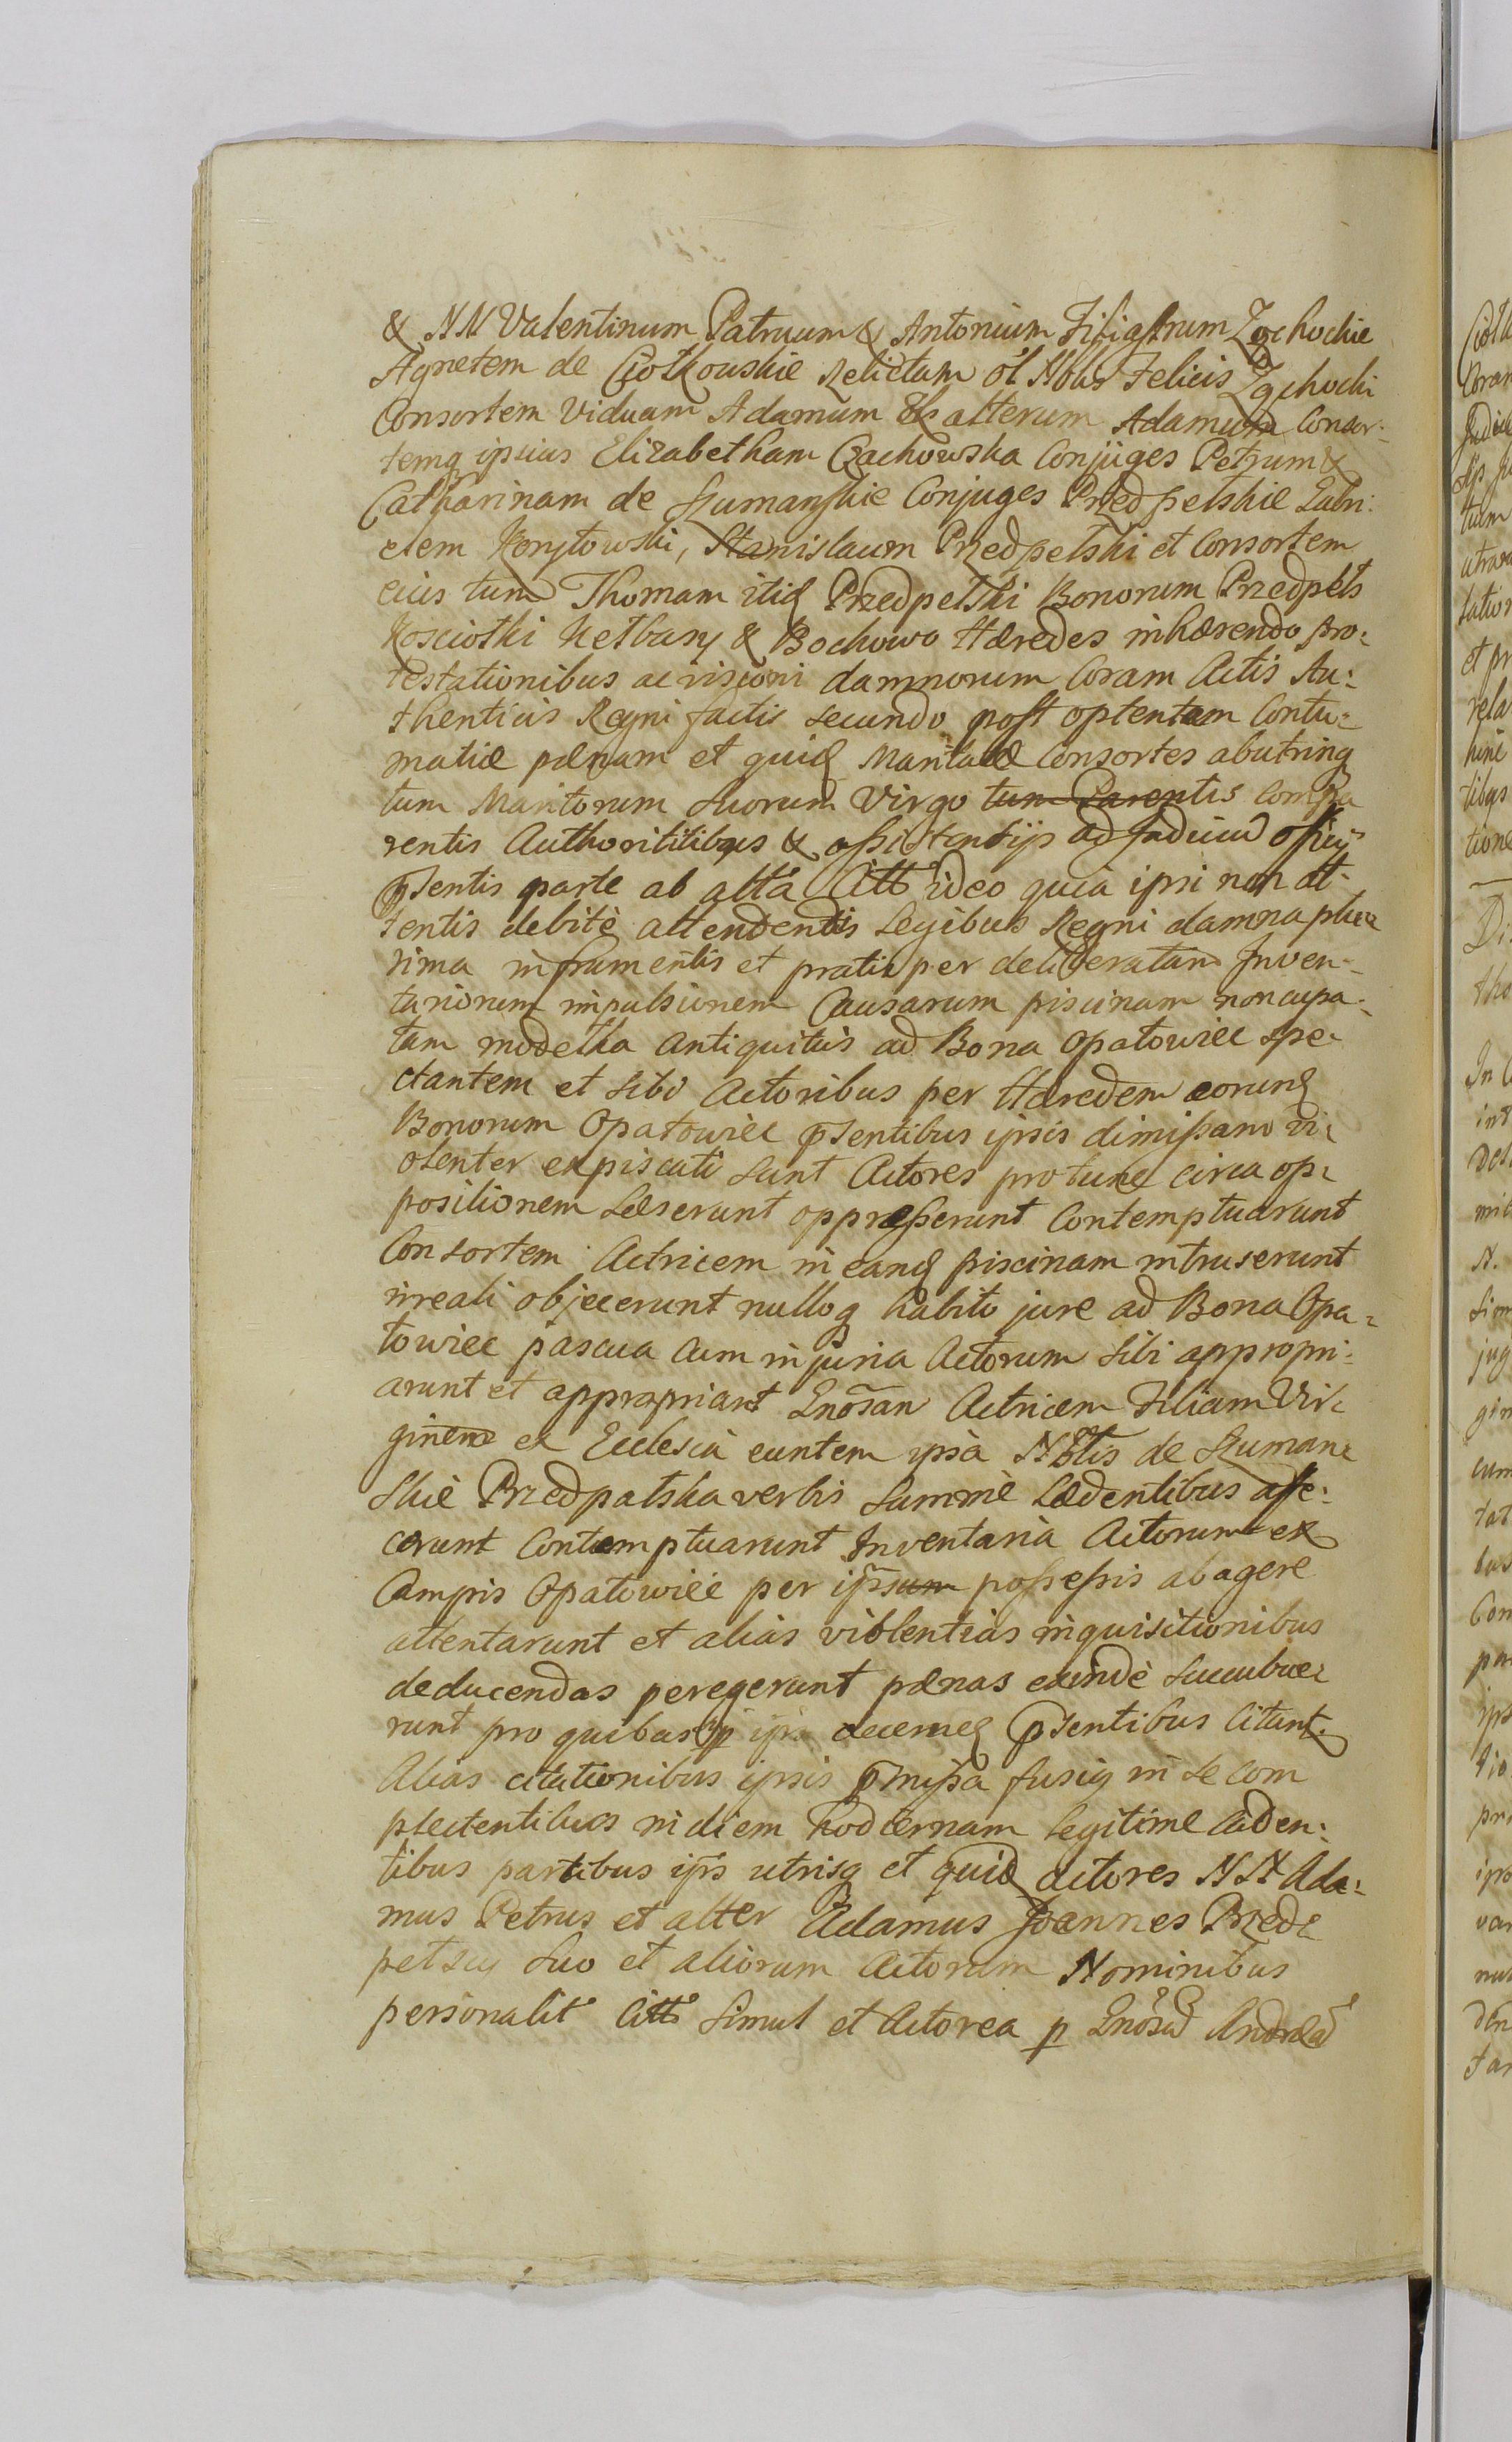 & NN Valentinum Patruum & Antonium Filiastrum Zochockie
Agnetem de Ciołkowskie Relictam ol Nblis Felicis Zochocki
Consortem Viduam Adamum & alterum Adamum Consor:
temq ipsius Elizabetham Czachowska Conjuges Petrum &
Catharinam de Szumanskie Conjuges Przedpełskie Gabri:
elem Korytowski, Stanislaum Przedpełski et Consortem
eius tum Thomam itiq Przedpełski Bonorum Przedpełs
Kosciołki & Bochowo Hæredes inhærendo pro:
testationibus ac visioni damnorum Coram Actis Au:
thenticis Regni factis secundo post optentam Contu:
matiæ pænam et quiq Maritatæ Consortes abutrinq
tum Maritorum suorum Virgo tum Parentis Compa
rentis Authorititibqs & assistentijs ad Judiciu officij
pntis parte ab altа Citt ideo quia ipsi non at:
tentis debitè attendendis Legibus Regni damna plu
rima in frumentis et pratis per deliberatam Inven:
tariorum impulsionem Causarum piscinam noncupa:
tam modełka antiquitus ad Bona Opatowiec spe:
ctantem et sibi Actoribus per Hæredem eorunq
Bonorum Opatowiec psentibus ipsis dimissam vi:
olenter expiscati sunt Actores protunc circa op:
positionem Læserunt oppræsserunt Contemptuarunt
Consortem Actricem in eanq piscinam intruserunt
irreali objecerunt nulloq habito jure ad Bona Opa:
towiec pascua cum injuria Actorum sibi appropri:
arunt et appropriant Gnosan Actricem Filiam Vir:
ginem ex Ecclesia euntem ipsa Nblis de Szuman:
skie Przedpałska verbis summè Lædentibus affe:
cerunt Contemptuarunt Inventaria Actorum ex
Campis Opatowiec per ipsum possessis abagere
attentarunt et alias violentias inquisitionibus
deducendas peregerunt pænas exindè succubue:
runt pro quibus psentibus Citant.
Alias citationibus ipsis pmissa fusiq in se com
plectentibus in diem hodiernam legitime Caden:
tibus partibus ipis utrisq et quiq actores NN Ada:
mus Petrus et alter Adamus Joannes Przed:
pełscy suo et aliorum Actorum Nominibus
personalit Citti simul et Actorea p Gnosu Andream